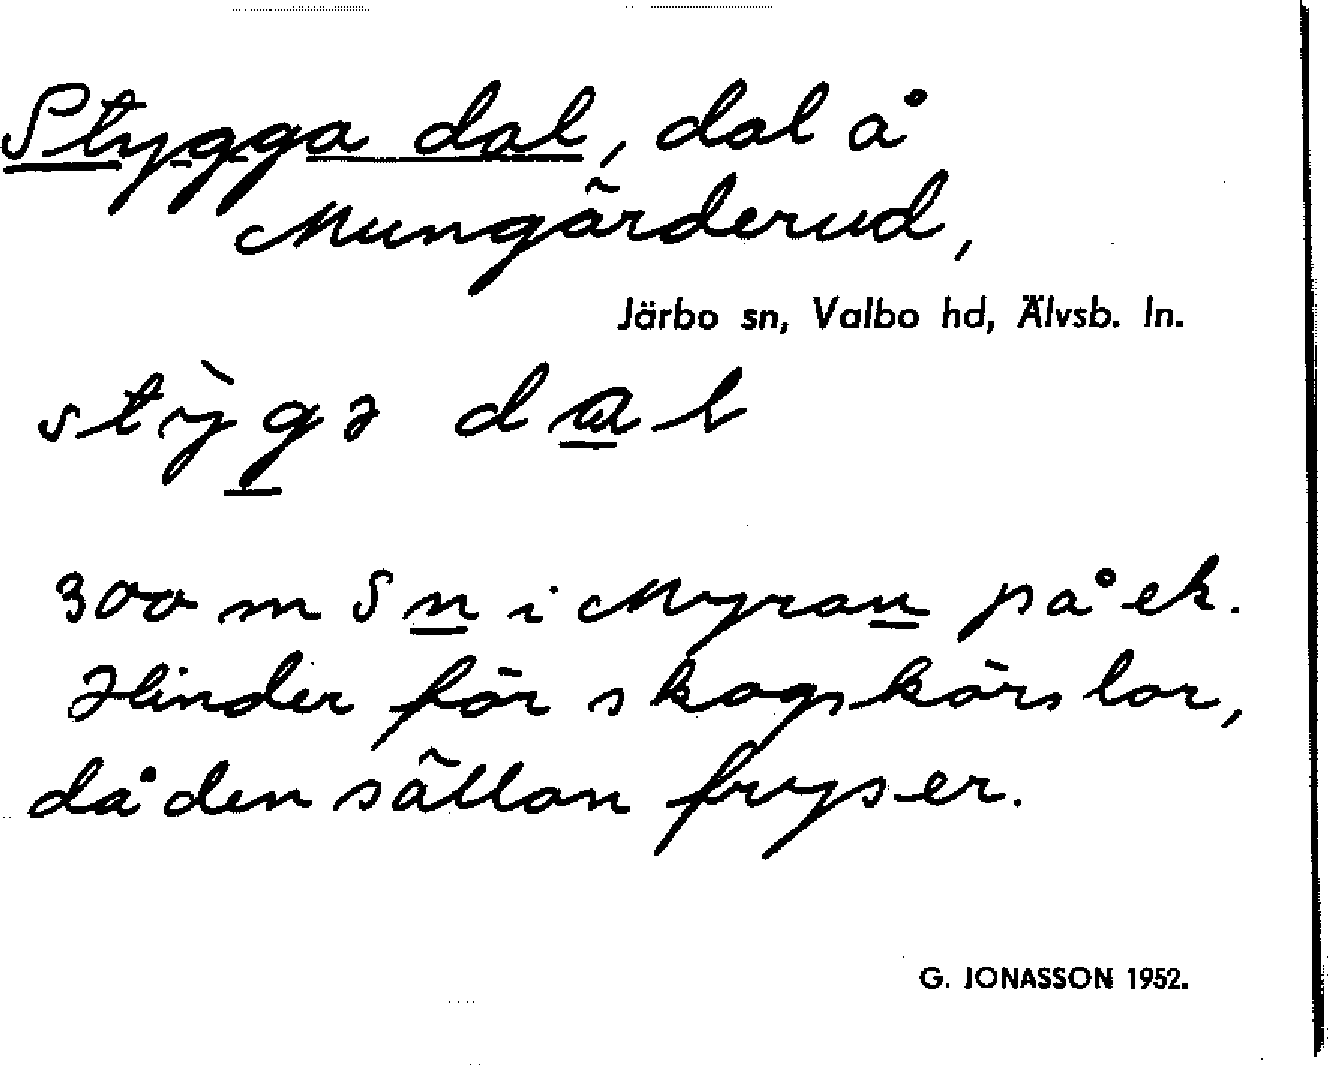 Stygga dal, dal å
Mungärderud,
Järbo sn, Valbo hd, Älvsb. ln.
stỳgə dɑl
300 m S n i Myran på ek.
Hinder för skogskörslor,
då den sällan fryser.
G. JONASSON 1952.